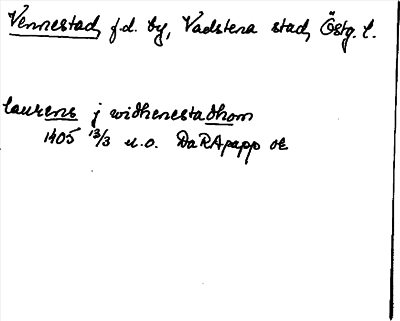 Vennestad f.d. by, Vadstena stad, Östg. l.
laurens j widhenestadhom
1405 13/3 u.o. DaRApapp ok